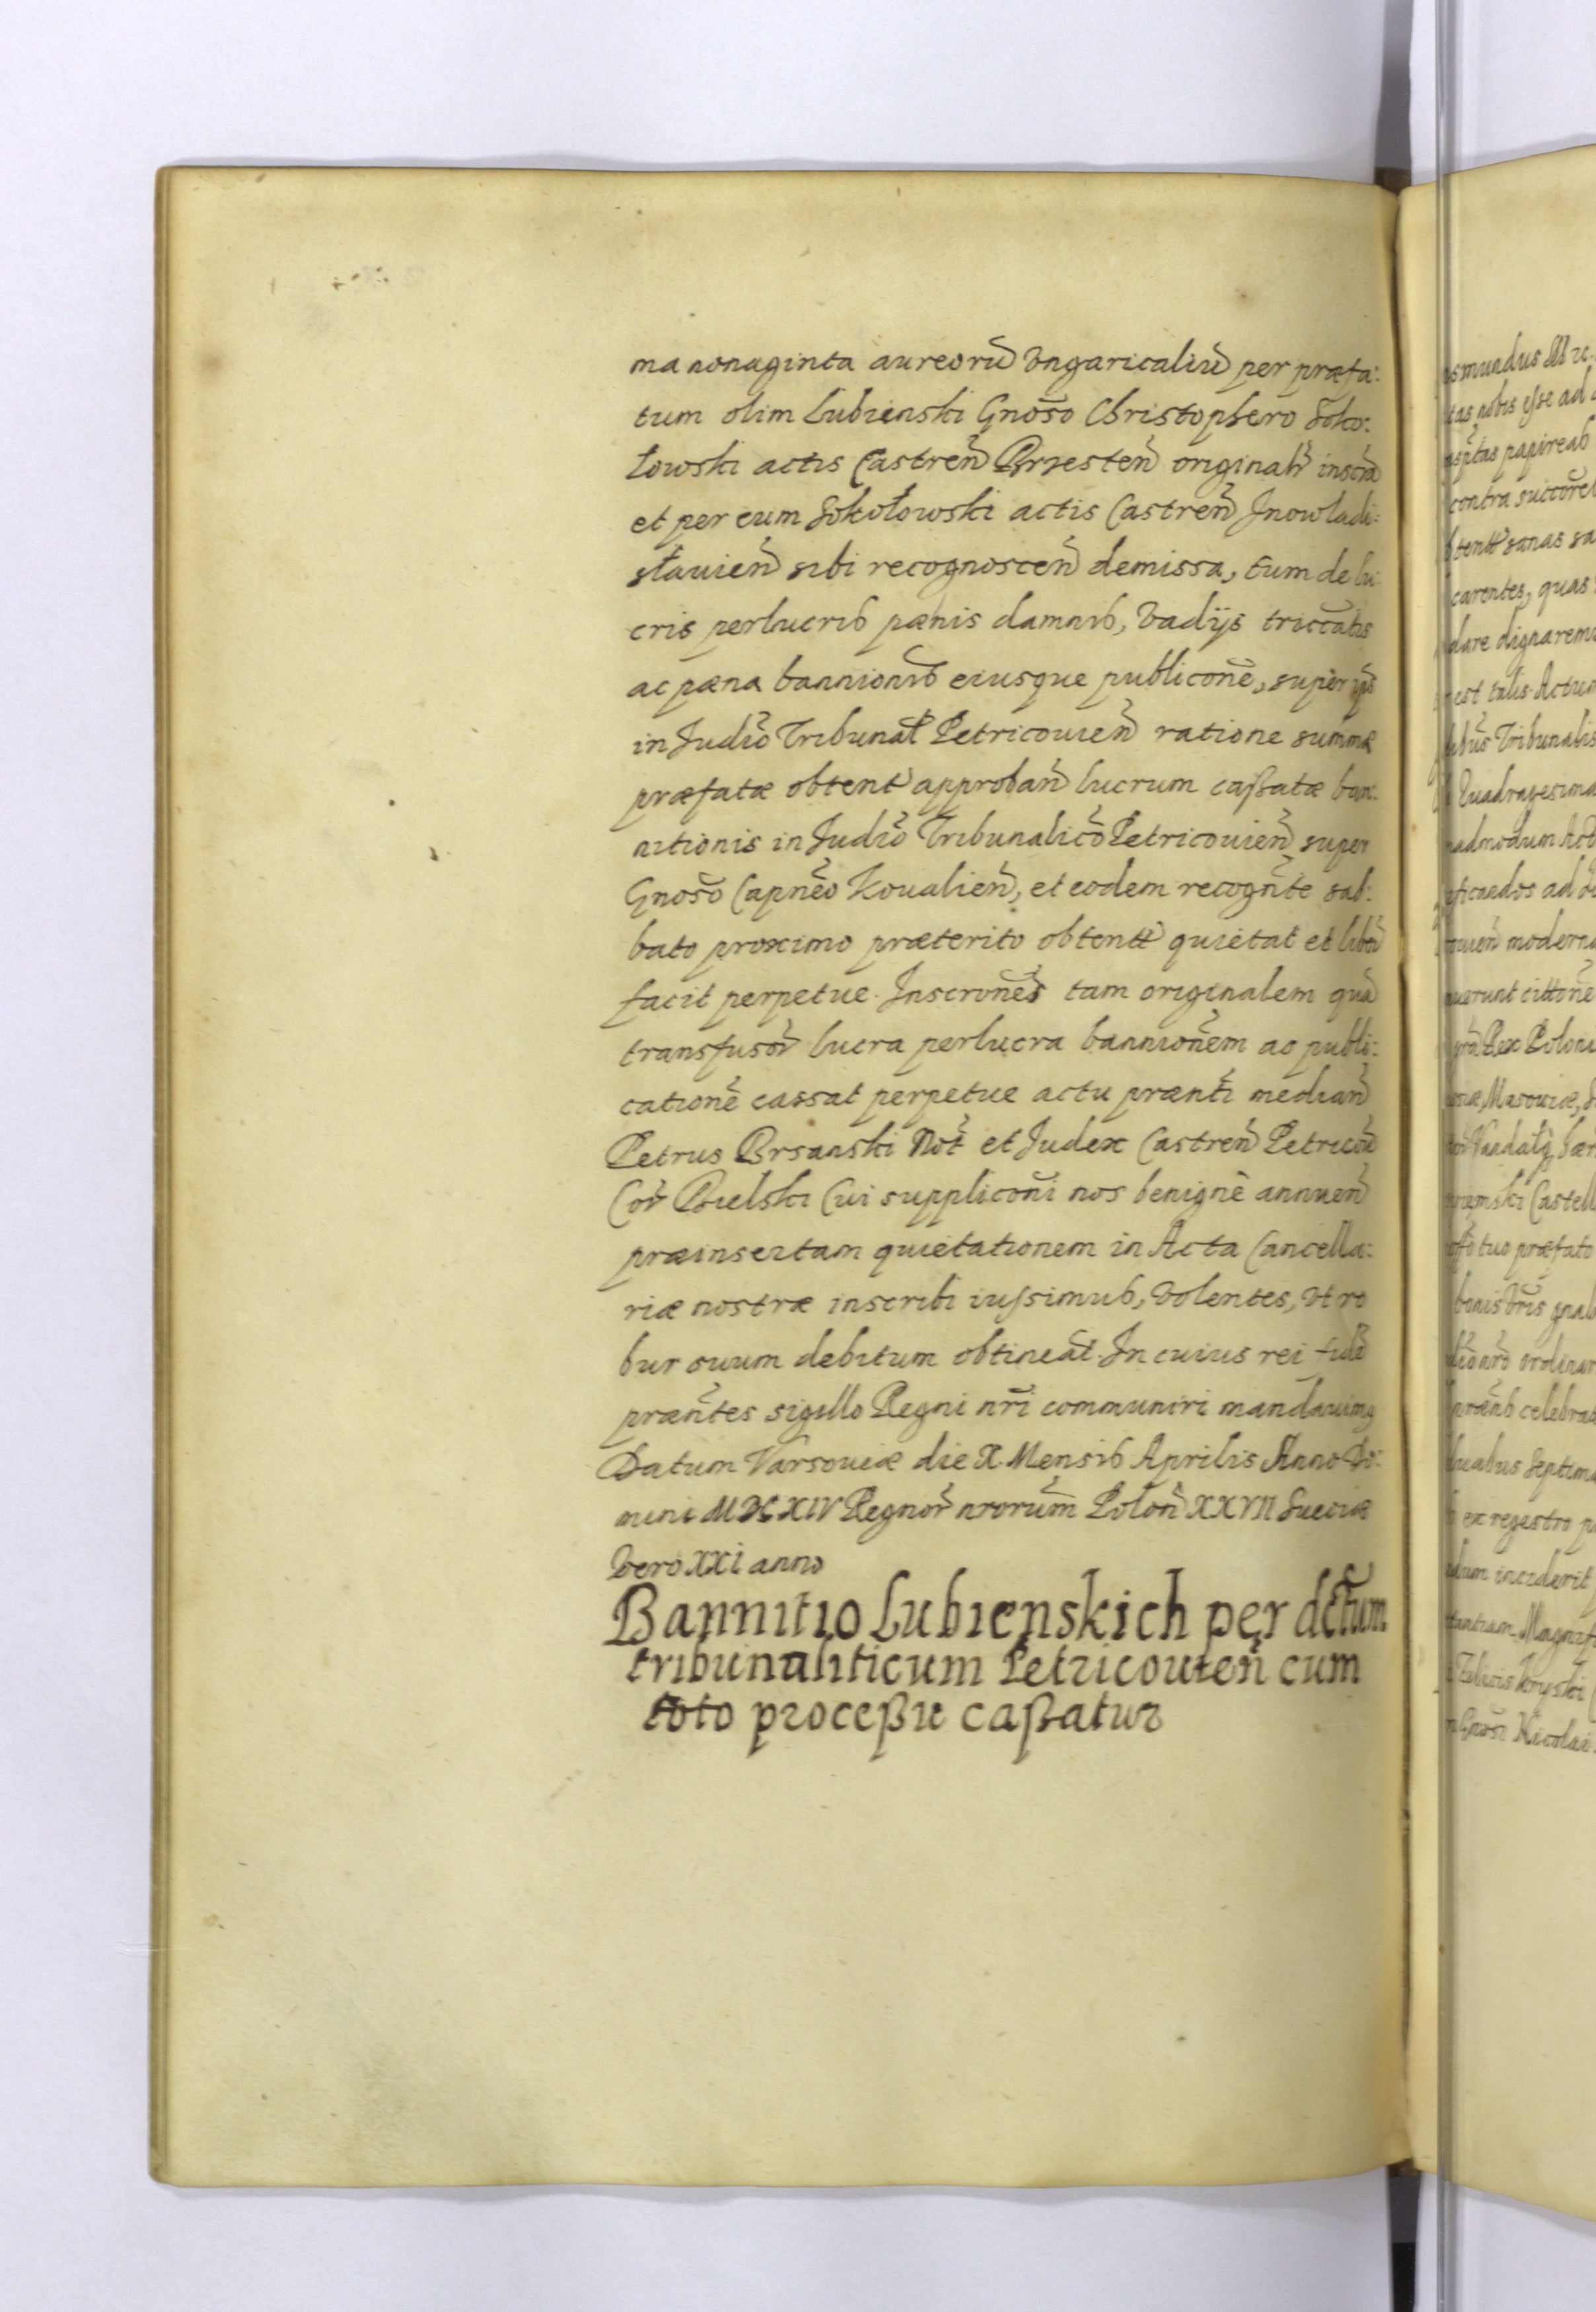 ma nonaginta aureorũ Vngaricaliũ per præfa:
tum olim Lubienski Gnoso Christophero Soko:
łowski actis Castreñ Brzesteñ originalr inscra
et per eum Sokołowski actis Castreñ Jnowladi:
slauieñ sibi recognosceñ demissa, tum de lu:
cris perlucris pœnis damnis, Vadijs triccatis
ac pœna bannionis eiusque publicone, super ips
in Judio Tribunal Petricouieñ ratione summæ
præfatæ obtent approbañ lucrum caßatæ ban:
nitionis in Judio Tribunalico Petricouieñ super
Gnoso Capneo Koualieñ, et eodem recognte sab:
bato proximo præterito obtentt quietat et liberũ
facit perpetue. Inscrones tam originalem quã
transfusor lucra perlucra bannionem ac publi:
catione cassat perpetue actu prænti mediañ
Petrus Brsanski Not et Judex Castreñ Petricoũ
Cor Bielski Cui suppliconi nos benignè annueñ
præinsertam quietationem in Acta Cancella:
riæ nostræ inscribi iussimus, Volentes, Vt ro
bur suum debitum obtineat. In cuius rei fidẽ
præntes sigillo Regni nri communiri mandauimq
Datum Varsouiæ die X Mensis Aprilis Anno Do:
mini MDCXIV Regnor nrorum Poloñ XXVII Sueciæ
Vero XXI anno
Bannitio Lubienskich per dctum
tribunaliticum Petricouieñ cum
toto proceßu caßatur
smundus
tas nobis esse ad
papireas
contra
sanas
carentes, quas
dare dignaremu
est talis Actum
Tribunalis
Quadragesima
admodum
ad
moderno
Rex Poloni
Masouiæ,
Castell
tuo præfato
bonis
ordinar
celebrat
Septima
ex registro
inciderit
Magnifi
Kryski
Gnosi Nicolai